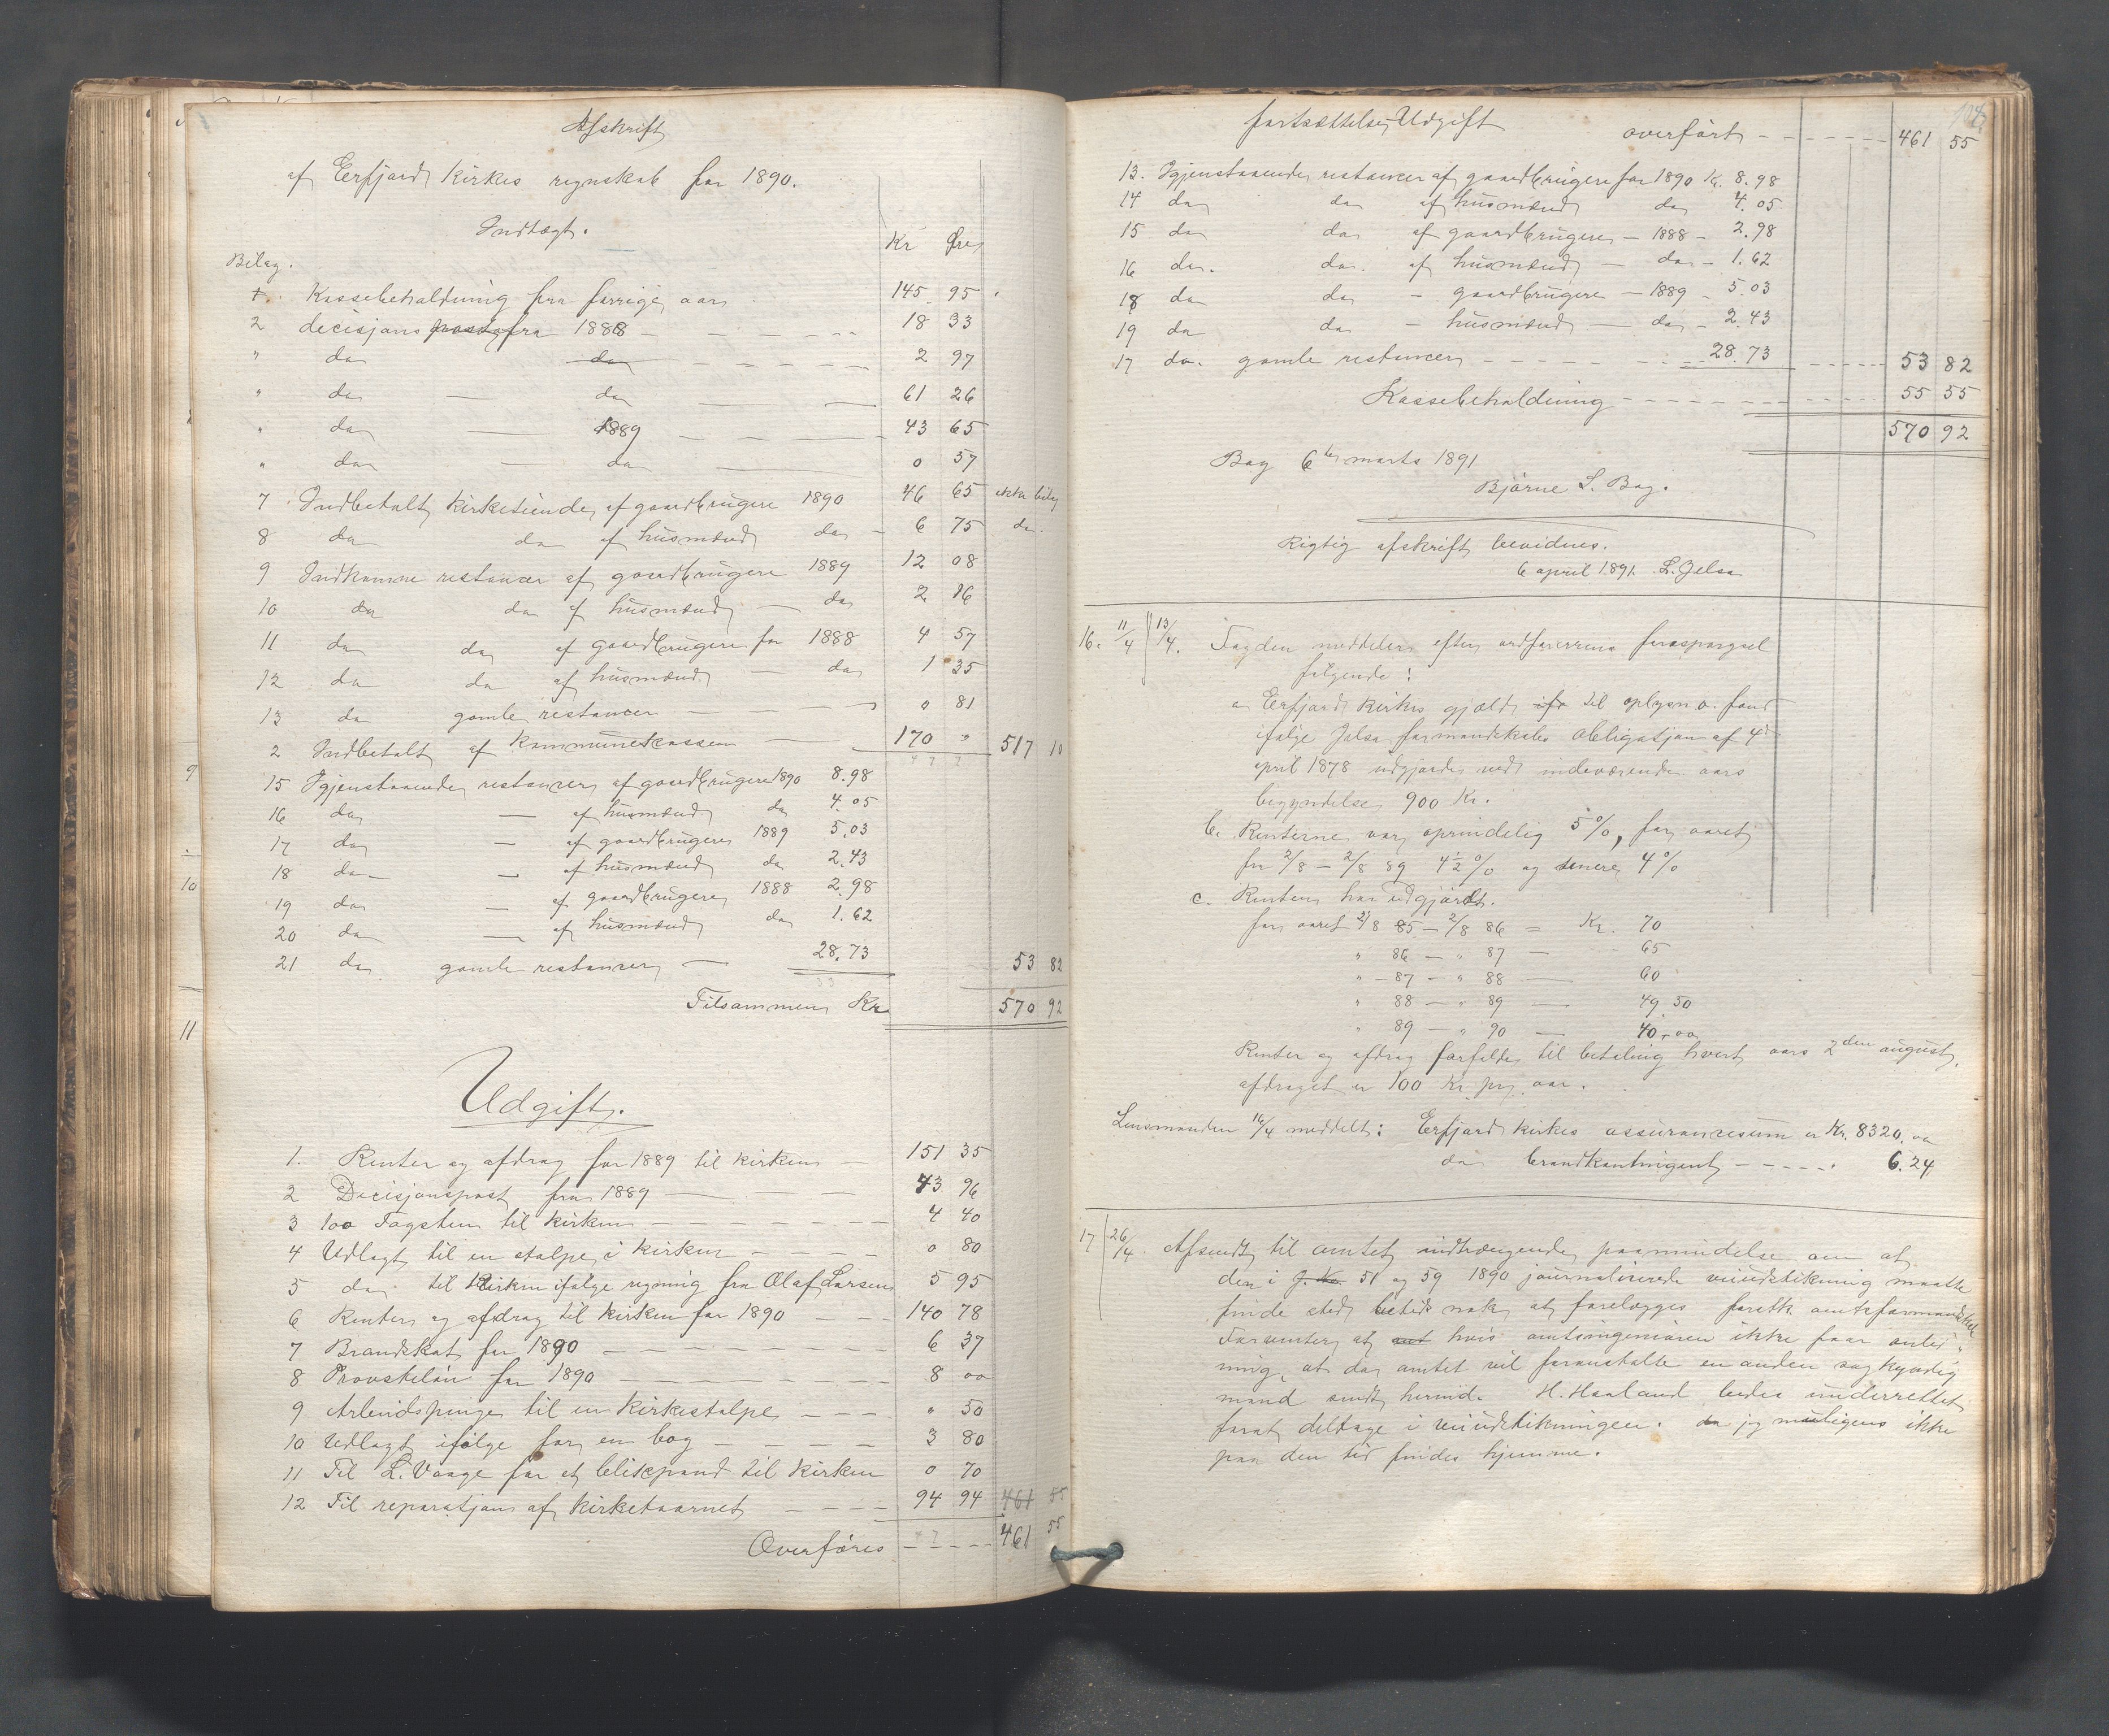 Afskrift
af Erfjord Kirkes regnskab for 1890.
Indtægt.
Kr Øre
Bilag.
1. Kassebeholdning fra forrige aar 145 95
2 decisjons posta fra 1888 - - - 18 33
" do do - - - 2 97
" do — do — 61 26
" do — 1889 — 43 65
" do — do — 0 57
7 Indbetalt Kirketiende af gaardbrugere 1890 46 65 ikke bilag
8 do do af husmænd do - 6 75 do.
9 Indkomne restancer af gaardbrugere 1889 12 08
10 do do af husmænd — do 2 16
11 do do af gaardbrugere for 1888 4 57
12 do do af husmænd — do 1 35
13 do gamle restancer - - - 0 81
2 Indbetalt af Kommunekassen — 170 " 517 10
15 Igjenstaaende restancer af gaardbrugere 1890 8.98
16 do — af husmænd do 4.05
17 do — af gaardbrugere 1889 5.03
18 do — af husmænd do 2.43
19 do — af gaardbrugere 1888 2.98
20 do — af husmænd do 1.62
21 do gamle restancer — 28.73 53 82
Tilsammen Kr 570 92
Udgift.
1. Renter og afdrag for 1889 til kirken — 151 35
2 Decisjonspost fra 1889 — — — 43 96
3 100 Tagsten til kirken - - - 4 40
4 Udlagt til en stolpe i kirken - - - 0 80
5 do til kirken ifølge regning fra Olaf Larsen 5 95
6 Renter og afdrag til kirken for 1890 - - - 140 78
7 Brandskat for 1890 - - - 6 37
8 Provsteløn for 1890 - - - 8 00
9 Arbeidspenge til en Kirkestolpe - - - " 50
10 Udlagt ifølge for en bog - - - 3 80
11 Til L. Vaage for et blikspand til kirken 0 70
12 Til reparatjon af kirketaarnet - - - 94 94 461 55
Overføres - - - 461 55
9
10
11
104
fortsættelse, Udgift overført - - - 461 55
13. Igjenstaaende restancer af gaardbrugere for 1890 Kr. 8.98
14 do do af husmænd do 4.05
15 do do af gaardbrugere — 1888 - 2.98
16 do. do. af husmænd — do - 1.62
18 do do - gaardbrugere — 1889 - 5.03
19 do do - husmænd — do - 2.43
17 do. gamle restancer - - - 28.73 - - - 53 82
Kassebeholdning - - - 55 55
570 92
Bog 6te marts 1891
Bjørne L. Bog.
Rigtig afskrift bevidnes.
6 april 1891. L. Jelsa
16. 11/4 13/4. Fogden meddeler efter ordførerens forespørgsel
følgende:
a Erfjord Kirkes gjæld til oplysn o. fond
ifølge Jelsa formandskabs obligatjon af 4de
april 1878 udgjorde ved indeværende aars
begyndelse 900 Kr.
b. Renterne var oprindelig 5%, for aaret
fra 2/8 – 2/8 89 4½% og senere 4%
c. Renten har udgjordt.
for aaret 2/8 85 – 2/8 86 = Kr. 70
" 86 – " 87 — 65
" – 87 – " 88 — 60
" 88 – " 89 — 49.50
" 89 – " 90 — 40.00
Renter og afdrag forfalder til betaling hvert aars 2den august,
afdraget er 100 Kr pr aar.
Lensmanden 16/4 meddelt: Erfjord kirkes assurancesum er Kr. 8320.00
do brandkontingent - - - - 6.24
17 26/4 Afsendt til amtet indtrængende paamindelse om at
den i J. No. 51 og 59 1890 journaliserede veiudstikning maatte
finde sted betids nok at forelægges forste amtsformandskab
Forventer at hvis amtsingeniøren ikke faar anled-
ning, at da amtet vil foranstalte en anden sagkyndig
mand sendt herind. H. Haaland bedes underrettet
forat deltage i veiudstikningen. da jeg muligens ikke
paa den tid findes hjemme.